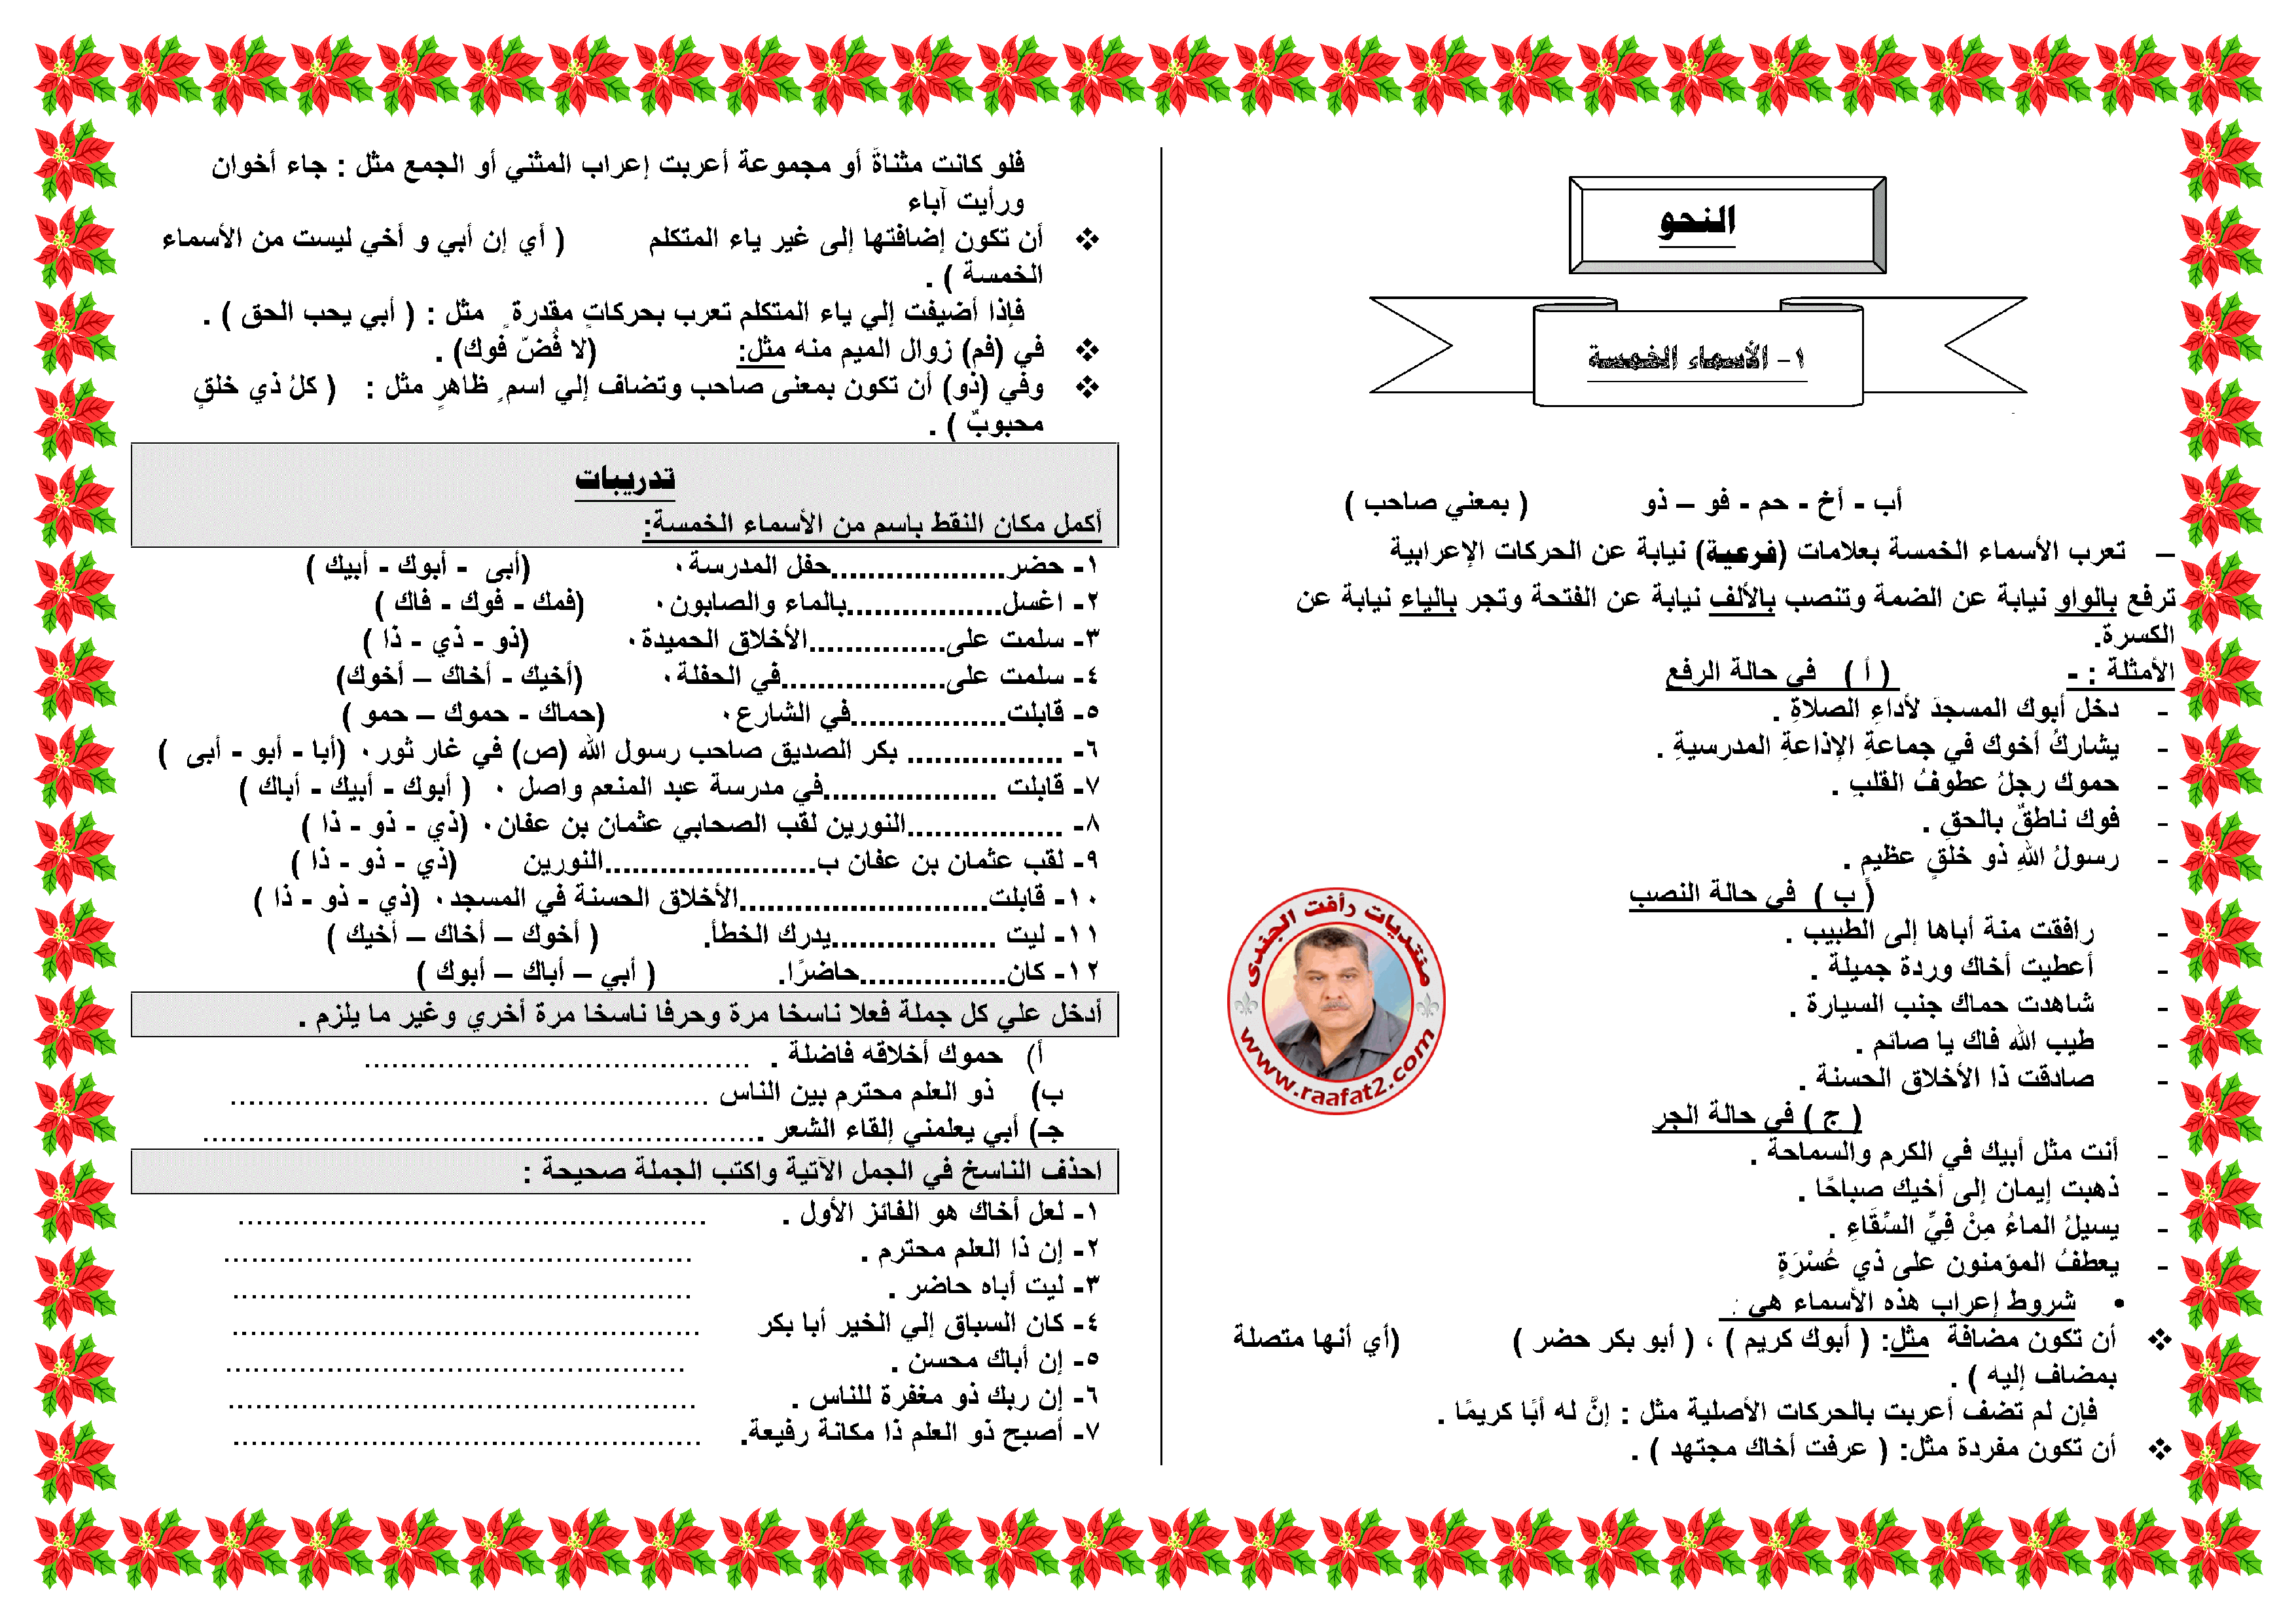 النحو
١- الأسماء الخمسة
أب - أخ - حم - فو – ذو ( بمعني صاحب )
– تعرب الأسماء الخمسة بعلامات (فرعية) نيابة عن الحركات الإعرابية
ترفع بالواو نيابة عن الضمة وتنصب بالألف نيابة عن الفتحة وتجر بالياء نيابة عن
الكسرة.
الأمثلة : - ( أ ) في حالة الرفع
- دخل أبوك المسجدَ لأداءِ الصلاةِ .
- يشاركُ أخوك في جماعةِ الإذاعةِ المدرسيةِ .
- حموك رجلُ عطوفُ القلبِ .
- فوك ناطقٌ بالحقِ .
- رسولُ اللهِ ذو خلقٍ عظيم .
( ب ) في حالة النصب
- رافقت منة أباها إلى الطبيب .
- أعطيت أخاك وردة جميلة .
- شاهدت حماك جنب السيارة .
- طيب الله فاك يا صائم .
- صادقت ذا الأخلاق الحسنة .
( ج ) في حالة الجر
- أنت مثل أبيك في الكرم والسماحة .
- ذهبت إيمان إلى أخيك صباحًا .
- يسيلُ الماءُ مِنْ فِيِّ السِّقَاءِ .
- يعطفُ المؤمنون على ذي عُسْرَةٍ
• شروط إعراب هذه الأسماء هي :
❖ أن تكون مضافة مثل: ( أبوك كريم ) ، ( أبو بكر حضر ) (أي أنها متصلة
بمضاف إليه ) .
فإن لم تضف أعربت بالحركات الأصلية مثل : إنَّ له أبًا كريمًا .
❖ أن تكون مفردة مثل: ( عرفت أخاك مجتهد ) .
منتديات رأفت الجندى
www.raafat2.com
فلو كانت مثناةً أو مجموعة أعربت إعراب المثني أو الجمع مثل : جاء أخوان
ورأيت آباء
❖ أن تكون إضافتها إلى غير ياء المتكلم ( أي إن أبي و أخي ليست من الأسماء
الخمسة ) .
فإذا أضيفت إلي ياء المتكلم تعرب بحركاتٍ مقدرة ٍ مثل : ( أبي يحب الحق ) .
❖ في (فم) زوال الميم منه مثل: (لا فُضّ فوك) .
❖ وفي (ذو) أن تكون بمعنى صاحب وتضاف إلي اسم ٍ ظاهرٍ مثل : ( كلُ ذي خلقٍ
محبوبٌ ) .
تدريبات
أكمل مكان النقط باسم من الأسماء الخمسة:
١- حضر...................حفل المدرسة٠ (أبى - أبوك - أبيك )
٢- اغسل.................بالماء والصابون٠ (فمك - فوك - فاك )
٣- سلمت على...............الأخلاق الحميدة٠ (ذو - ذي - ذا )
٤- سلمت على..................في الحفلة٠ (أخيك - أخاك – أخوك)
٥- قابلت.................في الشارع٠ (حماك - حموك – حمو )
٦- ................. بكر الصديق صاحب رسول الله (ص) في غار ثور٠ (أبا - أبو - أبى )
٧- قابلت ...................في مدرسة عبد المنعم واصل ٠ ( أبوك - أبيك - أباك )
٨- .................النورين لقب الصحابي عثمان بن عفان٠ (ذي - ذو - ذا )
٩- لقب عثمان بن عفان ب.......................النورين (ذي - ذو - ذا )
١٠- قابلت...........................الأخلاق الحسنة في المسجد٠ (ذي - ذو - ذا )
١١- ليت ..................يدرك الخطأ. ( أخوك – أخاك – أخيك )
١٢- كان................حاضرًا. ( أبي – أباك – أبوك )
أدخل علي كل جملة فعلا ناسخا مرة وحرفا ناسخا مرة أخري وغير ما يلزم .
أ) حموك أخلاقه فاضلة . ..........................................
ب) ذو العلم محترم بين الناس ....................................................
جـ) أبي يعلمني إلقاء الشعر .............................................................
احذف الناسخ في الجمل الآتية واكتب الجملة صحيحة :
١- لعل أخاك هو الفائز الأول . ...................................................
٢- إن ذا العلم محترم . ...................................................
٣- ليت أباه حاضر . ..................................................
٤- كان السباق إلي الخير أبا بكر ...................................................
٥- إن أباك محسن . ..................................................
٦- إن ربك ذو مغفرة للناس . ...................................................
٧- أصبح ذو العلم ذا مكانة رفيعة. ...................................................